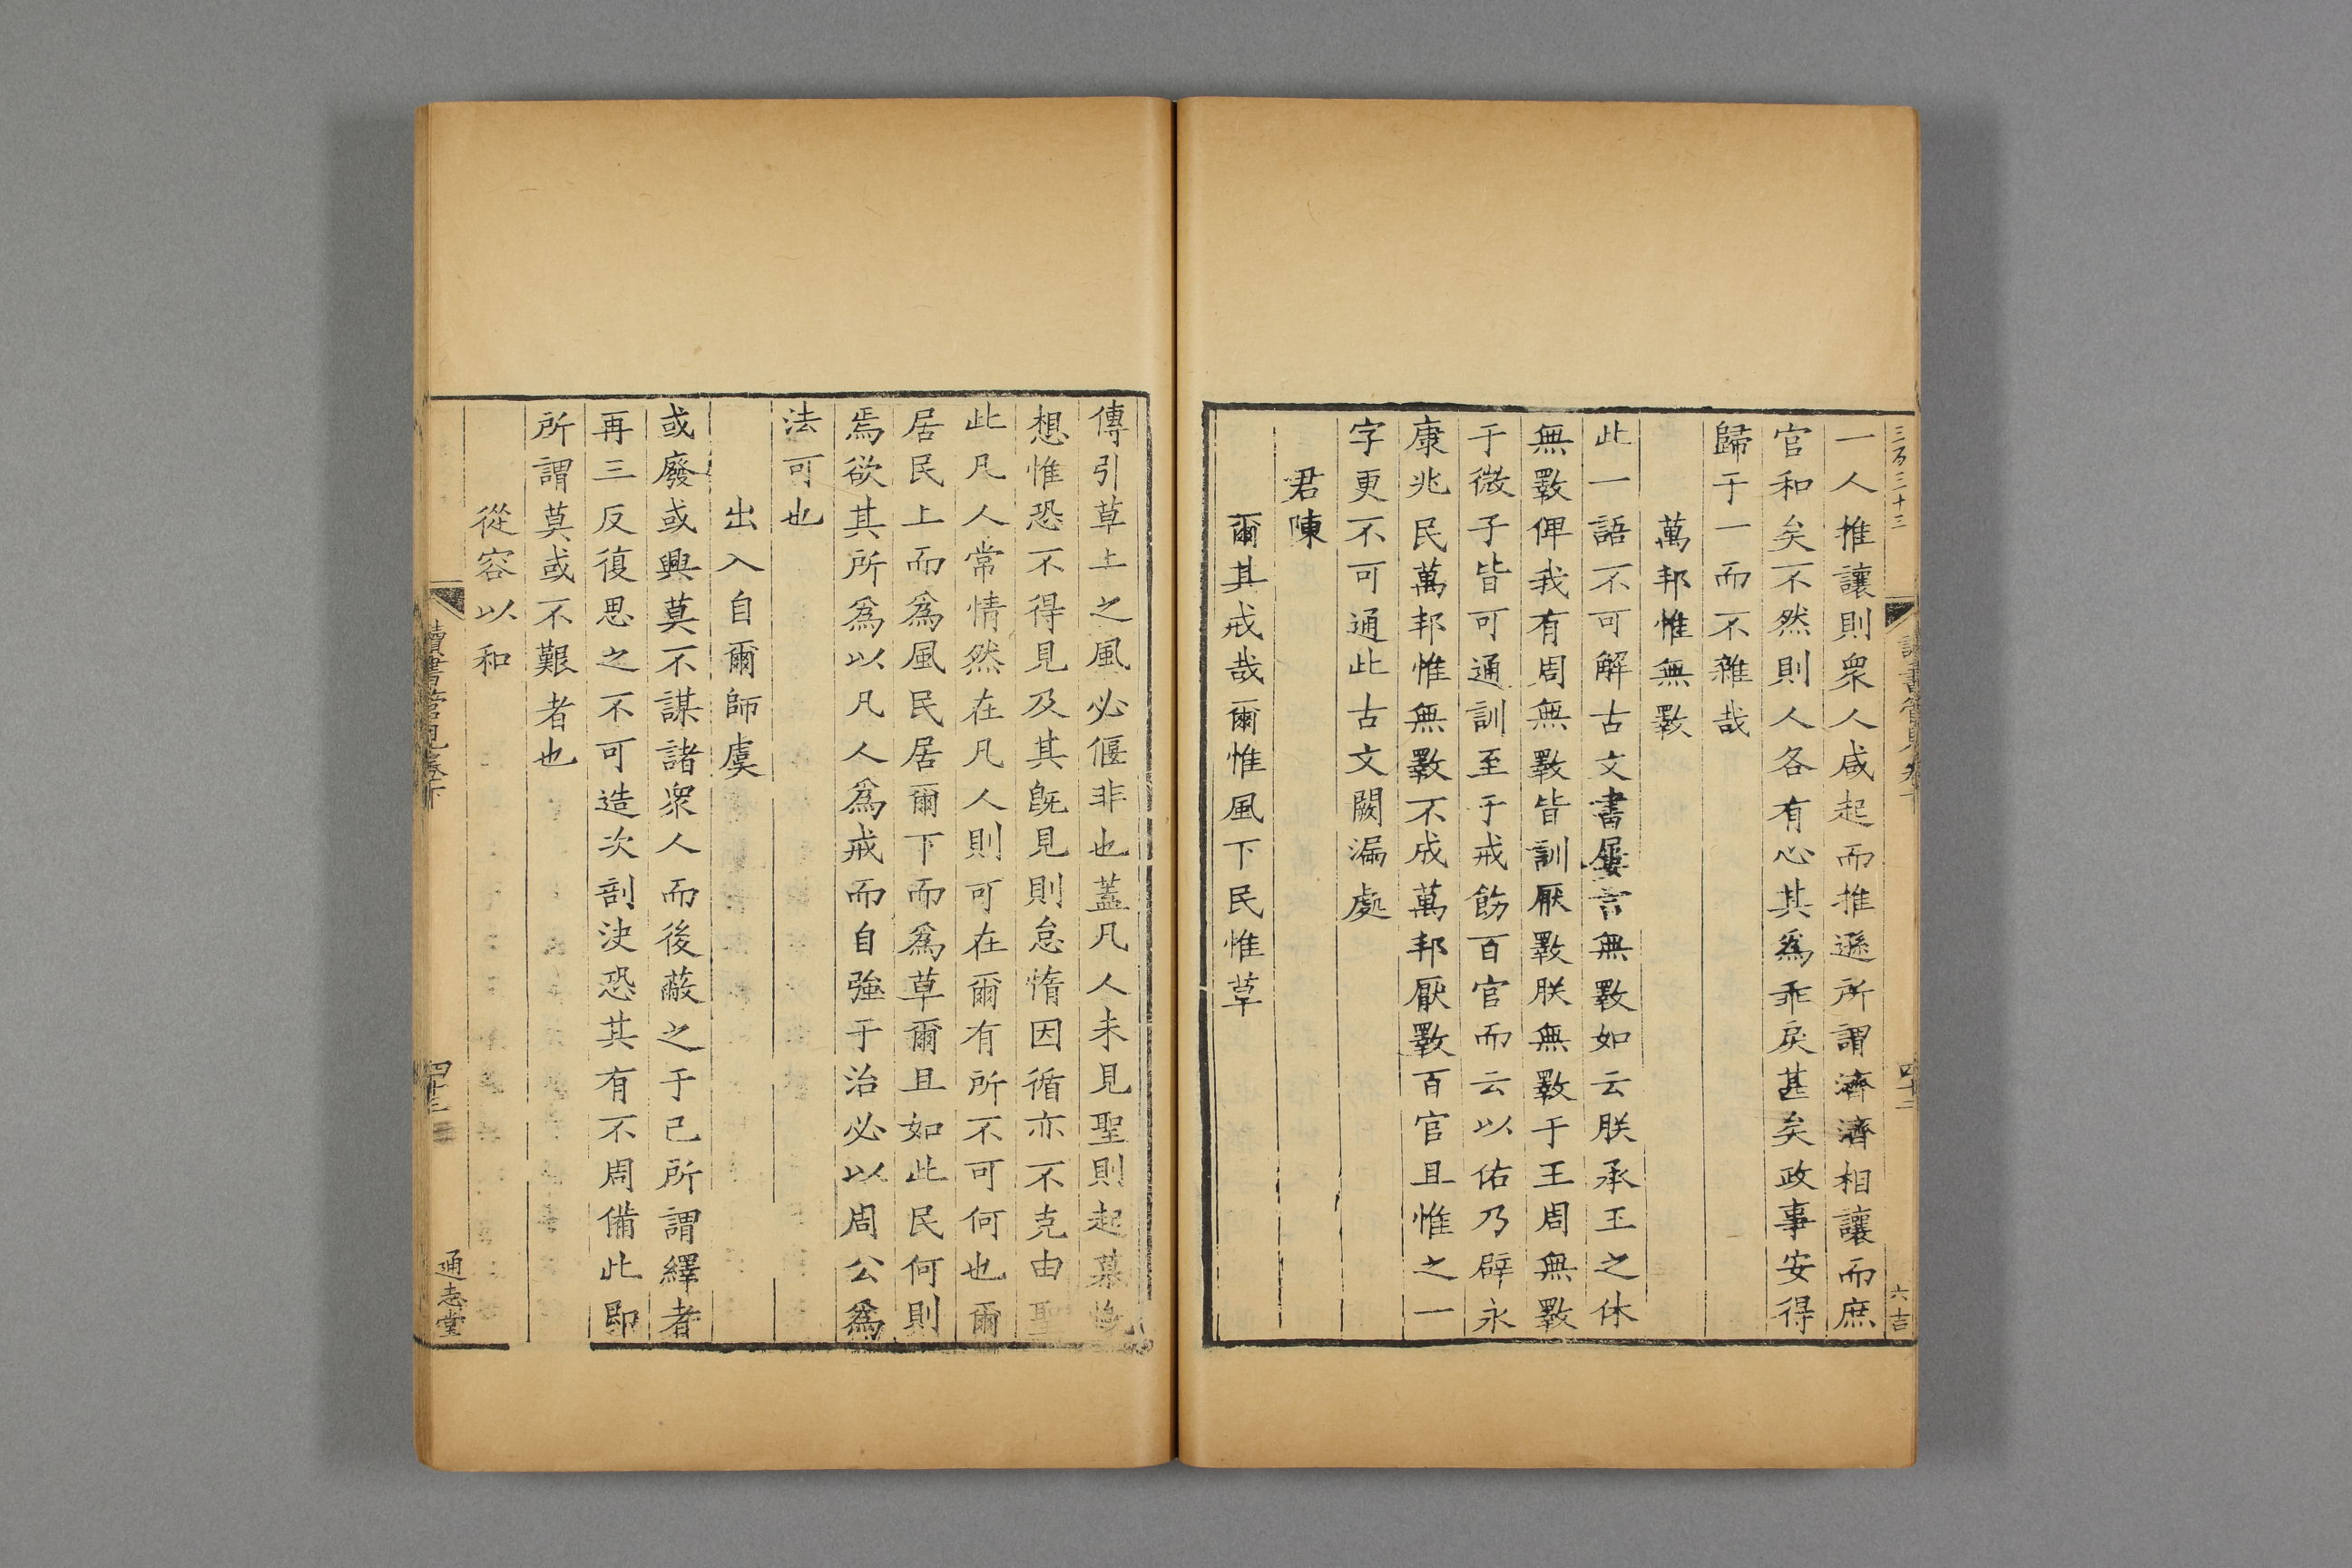 三百三十三
六吉
一人推讓則衆人咸起而推遜所謂濟濟相讓而庶
官和矣不然則人各有心其爲乖戾甚矣政事安得
歸于一而不雜哉
萬邦惟無斁
此一語不可解古文書屢言無斁如云朕承王之休
無斁俾我有周無斁皆訓厭斁朕無斁于王周無斁
于微子皆可通訓至于戒飭百官而云以佑乃辟永
康兆民萬邦惟無斁不成萬邦厭斁百官且惟之一
字更不可通此古文闕漏處
君陳
爾其戒哉爾惟風下民惟草
傳引草上之風必偃非也蓋凡人未見聖則起慕
想惟恐不得見及其旣見則怠惰因循亦不克由聖
此凡人常情然在凡人則可在爾有所不可何也爾
居民上而爲風民居爾下而爲草爾且如此民何則
焉欲其所爲以凡人爲戒而自強于治必以周公爲
法可也
出入自爾師虞
或廢或興莫不謀諸衆人而後蔽之于己所謂繹者
再三反復思之不可造次剖決恐其有不周備此即
所謂莫或不艱者也
從容以和
讀書管見卷下
四十三
通志堂